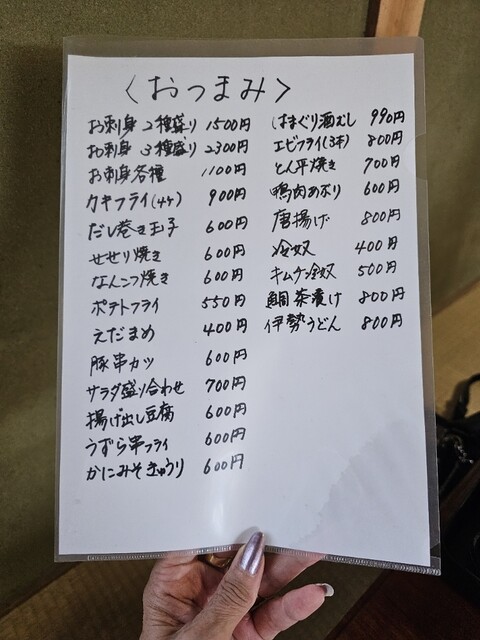 〈おつまみ〉
お刺身2種盛り 1500円
お刺身3種盛り 2300円
お刺身各種 1100円
カキフライ(4ケ) 900円
だし巻き玉子 600円
せせり焼き 600円
なんこつ焼き 600円
ポテトフライ 550円
えだまめ 400円
豚串カツ 600円
サラダ盛り合わせ 700円
揚げ出し豆腐 600円
うずら串フライ 600円
かにみそきゅうり 600円
はまぐり酒むし 990円
エビフライ(3本) 800円
とん平焼き 700円
鴨肉あぶり 600円
唐揚げ 800円
冷奴 400円
キムチ冷奴 500円
鯛茶漬け 800円
伊勢うどん 800円